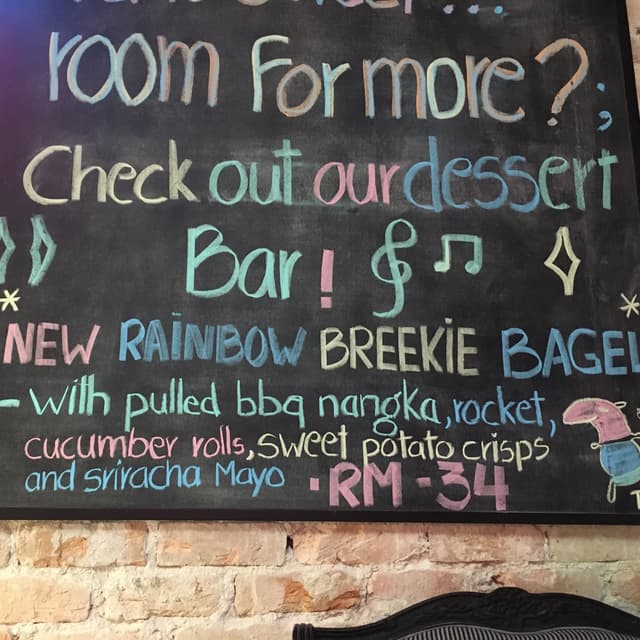 room for more?
Check out our dessert
Bar!
NEW RAINBOW BREEKIE BAGEL
- with pulled bbq nangka, rocket,
cucumber rolls, sweet potato crisps
and sriracha Mayo · RM - 34